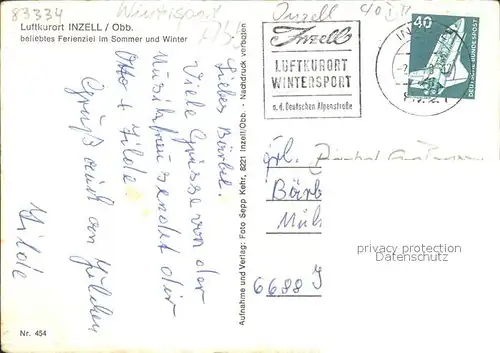 83334
Wintersport
Inzell
Luftkurort INZELL / Obb.
beliebtes Ferienziel im Sommer und Winter
Inzell
LUFTKURORT
WINTERSPORT
a. d. Deutschen Alpenstraße
40
DEUTSCHE BUNDESPOST
Liebes Bärbel.
Viele Grüsse von der
sendet dir
Otto + Hilde
Gruß auch an
Hilde
Aufnahme und Verlag: Foto Sepp Kehr, 8221 Inzell/Obb. - Nachdruck verboten
Bärb
Müh
6688 J
privacy protection
Datenschutz
Nr. 454